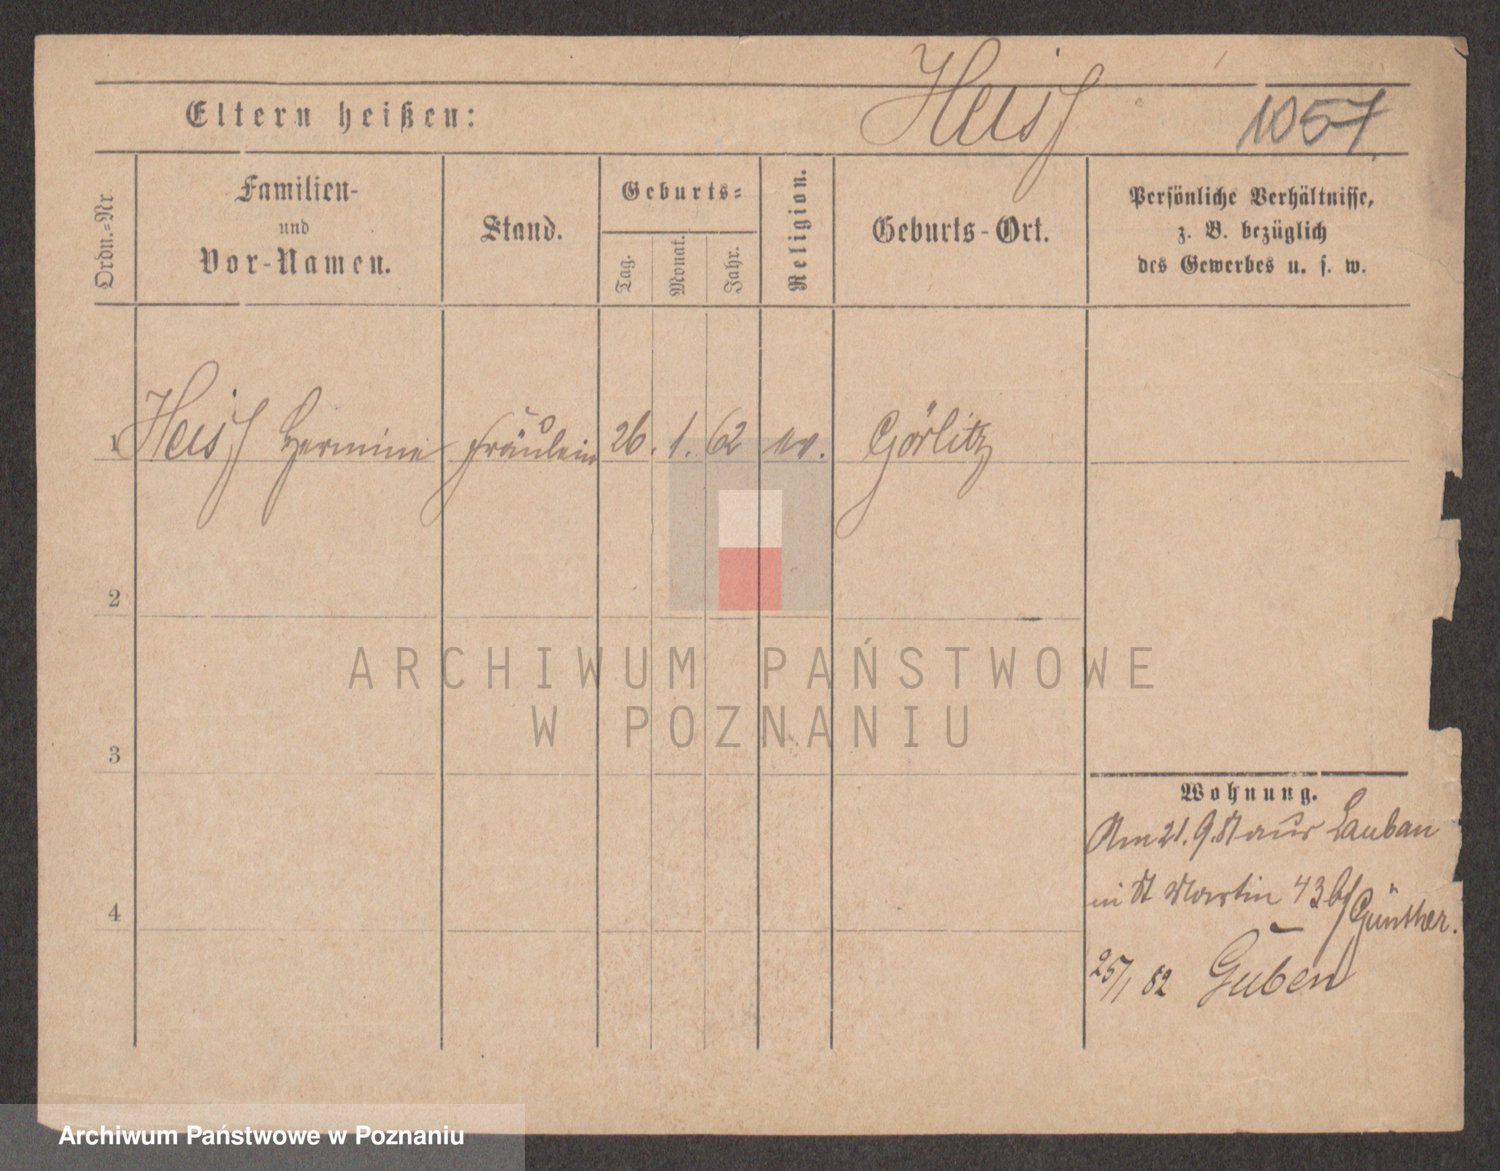 Heiß
1057
Eltern heißen:
Ordn.=Nr
Familien-
und
Vor-Namen.
Stand.
Geburts=
Tag.
Monat.
Jahr.
Religion.
Geburts-Ort.
Persönliche Verhältnisse,
z. B. bezüglich
des Gewerbes u. s. w.
1 Heiß Hermine Fräulein 26. 1. 62 ev. Görlitz
2
3
4
Wohnung.
Am 21. 9. 81 aus Lauban
in St Martin 43 b/
Günther.
25/1 82 Guben
ARCHIWUM PAŃSTWOWE
W POZNANIU
Archiwum Państwowe w Poznaniu